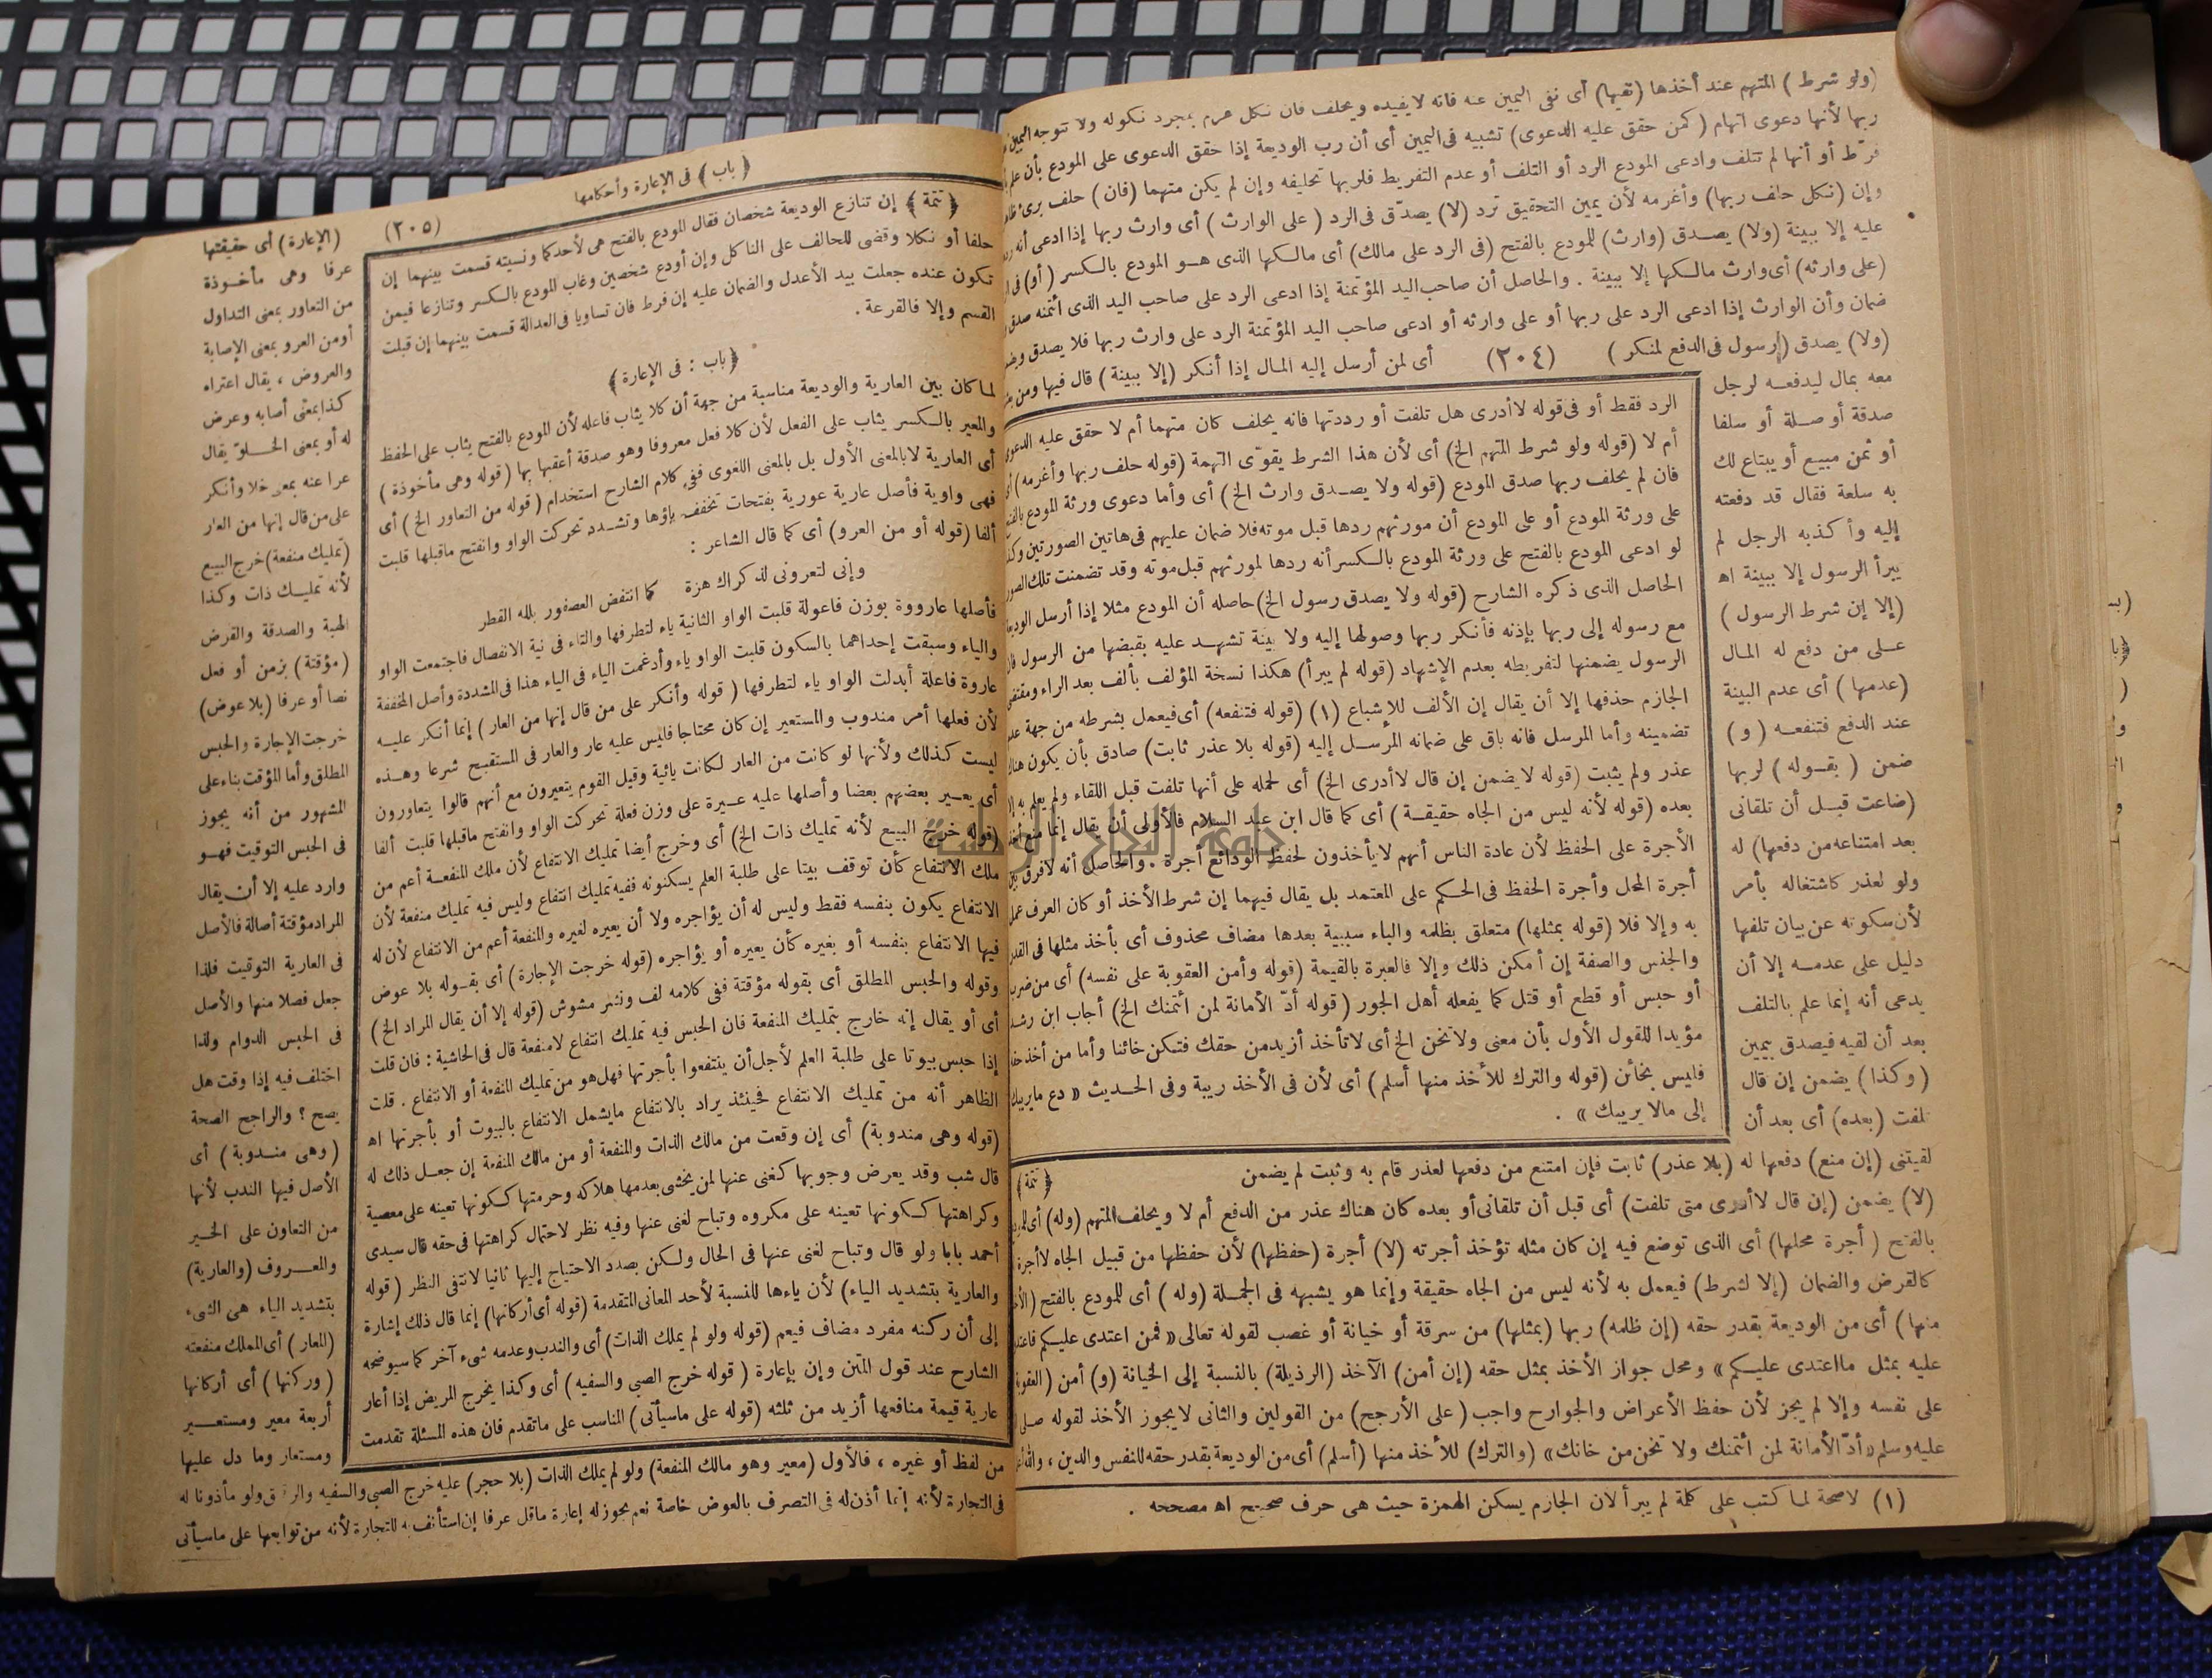 (ولو شرط) المتهم عند أخذها (نفيها) أى نفى اليمين عنه فانه لا يفيده ويحلف فان نكل غرم بمجرد نكوله ولا تتوجه اليمين
ربها لأنها دعوى اتهام (كمن حقق عليه الدعوى) تشبيه فى اليمين أى أن رب الوديعة إذا حقق الدعوى على المودع بأن
فرّط أو أنها لم تتلف وادعى المودع الرد أو التلف أو عدم التفريط فلربها تحليفه وإن لم يكن متهما (فان) حلف برئ
وإن (نكل حلف ربها) وأغرمه لأن يمين التحقيق ترد (لا) يصدّق فى الرد (على الوارث) أى وارث ربها إذا ادعى أنه
عليه إلا ببينة (ولا) يصدق (وارث) للمودع بالفتح (فى الرد على مالك) أى مالكها الذى هو المودع بالكسر (أو)
(على وارثه) أى وارث مالكها إلا ببينة . والحاصل أن صاحب اليد المؤتمنة إذا ادعى الرد على صاحب اليد الذى ائتمنه صدق
ضمان وأن الوارث إذا ادعى الرد على ربها أو على وارثه أو ادعى صاحب اليد المؤتمنة الرد على وارث ربها فلا يصدق
(ولا) يصدق (رسول فى الدفع لمنكر) (٢٠٤) أى لمن أرسل إليه المال إذا أنكر (إلا ببينة) قال فيها ومن
معه بمال ليدفعه لرجل
صدقة أو صلة أو سلفا
أو ثمن مبيع أو يبتاع لك
به سلعة فقال قد دفعته
إليه وأكذبه الرجل لم
يبرأ الرسول إلا ببينة اه
(إلا إن شرط الرسول)
على من دفع له المال
(عدمها) أى عدم البينة
عند الدفع فتنفعه (و)
ضمن (بقوله) لربها
(ضاعت قبل أن تلقانى
بعد امتناعه من دفعها) له
ولو لعذر كاشتغاله بأمر
لأن سكوته عن بيان تلفها
دليل على عدمه إلا أن
يدعى أنه إنما علم بالتلف
بعد أن لقيه فيصدق بيمين
(وكذا) يضمن إن قال
تلفت (بعده) أى بعد أن
الرد فقط أو فى قوله لا أدرى هل تلفت أو رددتها فانه يحلف كان متهما أم لا حقق عليه الدعوى
أم لا (قوله ولو شرط المتهم الخ) أى لأن هذا الشرط يقوّى التهمة (قوله حلف ربها وأغرمه)
فان لم يحلف ربها صدق المودع (قوله ولا يصدق وارث الخ) أى وأما دعوى ورثة المودع
على ورثة المودع أو على المودع أن مورثهم ردها قبل موته فلا ضمان عليهم فى هاتين الصورتين
لو ادعى المودع بالفتح على ورثة المودع بالكسر أنه ردها لمورثهم قبل موته وقد تضمنت تلك
الحاصل الذى ذكره الشارح (قوله ولا يصدق رسول الخ) حاصله أن المودع مثلا إذا أرسل الوديعة
مع رسوله إلى ربها بإذنه فأنكر ربها وصولها إليه ولا بينة تشهد عليه بقبضها من الرسول
الرسول يضمنها لتفريطه بعدم الإشهاد (قوله لم يبرأ) هكذا نسخة المؤلف بألف بعد الراء ومقتضى
الجازم حذفها إلا أن يقال إن الألف للإشباع (١) (قوله فتنفعه) أى فيعمل بشرطه من جهة
تضمينه وأما المرسل فانه باق على ضمانه المرسل إليه (قوله بلا عذر ثابت) صادق بأن يكون هناك
عذر ولم يثبت (قوله لا يضمن إن قال لا أدرى الخ) أى لحمله على أنها تلفت قبل اللقاء ولم يعلم به
بعده (قوله لأنه ليس من الجاه حقيقة) أى كما قال ابن عبد السلام فالأولى أن يقال إنما منع
الأجرة على الحفظ لأن عادة الناس أنهم لا يأخذون لحفظ الودائع أجرة . والحاصل أنه لا فرق
أجرة المحل وأجرة الحفظ فى الحكم على المعتمد بل يقال فيهما إن شرط الأخذ أو كان العرف
به وإلا فلا (قوله بمثلها) متعلق بظلمه والباء سببية بعدها مضاف محذوف أى بأخذ مثلها فى القدر
والجنس والصفة إن أمكن ذلك وإلا فالعبرة بالقيمة (قوله وأمن العقوبة على نفسه) أى من ضرب
أو حبس أو قطع أو قتل كما يفعله أهل الجور (قوله أدّ الأمانة لمن ائتمنك الخ) أجاب ابن رشد
مؤيدا للقول الأول بأن معنى ولا تخن الخ أى لا تأخذ أزيد من حقك فتكن خائنا وأما من أخذ
فليس بخائن (قوله والترك للأخذ منها أسلم) أى لأن فى الأخذ ريبة وفى الحديث « دع ما يريبك
إلى مالا يريبك » .
لقيتنى (إن منع) دفعها له (بلا عذر) ثابت فإن امتنع من دفعها لعذر قام به وثبت لم يضمن ﴿تتمة﴾
(لا) يضمن (إن قال لا أدرى متى تلفت) أى قبل أن تلقانى أو بعده كان هناك عذر من الدفع أم لا ويحلف المتهم (وله)
بالفتح (أجرة محلها) أى الذى توضع فيه إن كان مثله تؤخذ أجرته (لا) أجرة (حفظها) لأن حفظها من قبيل الجاه لا أجرة
كالقرض والضمان (إلا لشرط) فيعمل به لأنه ليس من الجاه حقيقة وإنما هو يشبهه فى الجملة (وله) أى للمودع بالفتح
منها) أى من الوديعة بقدر حقه (إن ظلمه) ربها (بمثلها) من سرقة أو خيانة أو غصب لقوله تعالى « فمن اعتدى عليكم
عليه بمثل ما اعتدى عليكم » ومحل جواز الأخذ بمثل حقه (إن أمن) الآخذ (الرذيلة) بالنسبة إلى الخيانة (و) أمن
على نفسه وإلا لم يجز لأن حفظ الأعراض والجوارح واجب (على الأرجح) من القولين والثانى لا يجوز الأخذ لقوله صلى
عليه وسلم « أدّ الأمانة لمن ائتمنك ولا تخن من خانك » (والترك) للأخذ منها (أسلم) أى من الوديعة بقدر حقه للنفس والدين ، والله
(١) لا صحة لما كتب على كلمة لم يبرأ لان الجازم يسكن الهمزة حيث هى حرف صحيح اه مصححه .
﴿باب﴾ فى الإعارة وأحكامها (٢٠٥)
﴿تتمة﴾ إن تنازع الوديعة شخصان فقال المودع بالفتح هى لأحدكما ونسيته قسمت بينهما إن
حلفا أو نكلا وقضى للحالف على الناكل وإن أودع شخصين وغاب المودع بالكسر وتنازعا فيمن
تكون عنده جعلت بيد الأعدل والضمان عليه إن فرط فان تساويا فى العدالة قسمت بينهما إن قبلت
القسم وإلا فالقرعة .
﴿باب : فى الإعارة﴾
لما كان بين العارية والوديعة مناسبة من جهة أن كلا يثاب فاعله لأن المودع بالفتح يثاب على الحفظ
والمعير بالكسر يثاب على الفعل لأن كلا فعل معروفا وهو صدقة أعقبها بها (قوله وهى مأخوذة)
أى العارية لا بالمعنى الأول بل بالمعنى اللغوى ففى كلام الشارح استخدام (قوله من التعاور الخ) أى
فهى واوية فأصل عارية عورية بفتحات تخفف ياؤها وتشدد تحركت الواو وانفتح ما قبلها قلبت
ألفا (قوله أو من العرو) أى كما قال الشاعر :
وإنى لتعرونى لذكراك هزة كما انتفض العصفور بلله القطر
فأصلها عارووة بوزن فاعولة قلبت الواو الثانية ياء لتطرفها والتاء فى نية الانفصال فاجتمعت الواو
والياء وسبقت إحداهما بالسكون قلبت الواو ياء وأدغمت الياء فى الياء هذا فى المشددة وأصل المخففة
عاروة فاعلة أبدلت الواو ياء لتطرفها (قوله وأنكر على من قال إنها من العار) إنما أنكر عليه
لأن فعلها أمر مندوب والمستعير إن كان محتاجا فليس عليه عار والعار فى المستقبح شرعا وهذه
ليست كذلك ولأنها لو كانت من العار لكانت يائية وقيل القوم يتعيرون مع أنهم قالوا يتعاورون
أى يعير بعضهم بعضا وأصلها عليه عيرة على وزن فعلة تحركت الواو وانفتح ما قبلها قلبت ألفا
(قوله خرج البيع لأنه تمليك ذات الخ) أى وخرج أيضا تمليك الانتفاع لأن ملك المنفعة أعم من
ملك الانتفاع كأن توقف بيتا على طلبة العلم يسكنونه ففيه تمليك انتفاع وليس فيه تمليك منفعة لأن
الانتفاع يكون بنفسه فقط وليس له أن يؤاجره ولا أن يعيره لغيره والمنفعة أعم من الانتفاع لأن له
فيها الانتفاع بنفسه أو بغيره كأن يعيره أو يؤاجره (قوله خرجت الإجارة) أى بقوله بلا عوض
وقوله والحبس المطلق أى بقوله مؤقتة ففى كلامه لف ونشر مشوش (قوله إلا أن يقال المراد الخ)
أى أو يقال إنه خارج بتمليك المنفعة فان الحبس فيه تمليك انتفاع لا منفعة قال فى الحاشية : فان قلت
إذا حبس بيوتا على طلبة العلم لأجل أن ينتفعوا بأجرتها فهل هو من تمليك المنفعة أو الانتفاع . قلت
الظاهر أنه من تمليك الانتفاع فحينئذ يراد بالانتفاع ما يشمل الانتفاع بالبيوت أو بأجرتها اه
(قوله وهى مندوبة) أى إن وقعت من مالك الذات والمنفعة أو من مالك المنفعة إن جعل ذلك له
قال شب وقد يعرض وجوبها كغنى عنها لمن يخشى بعدمها هلاكه وحرمتها ككونها تعينه على معصية
وكراهتها ككونها تعينه على مكروه وتباح لغنى عنها وفيه نظر لاحتمال كراهتها فى حقه قال سيدى
أحمد بابا ولو قال وتباح لغنى عنها فى الحال ولكن بصدد الاحتياج إليها ثانيا لانتفى النظر (قوله
والعارية بتشديد الياء) لأن ياءها للنسبة لأحد المعانى المتقدمة (قوله أى أركانها) إنما قال ذلك إشارة
إلى أن ركنه مفرد مضاف فيعم (قوله ولو لم يملك الذات) أى والندب وعدمه شىء آخر كما سيوضحه
الشارح عند قول المتن وإن بإعارة (قوله خرج الصبى والسفيه) أى وكذا يخرج المريض إذا أعار
عارية قيمة منافعها أزيد من ثلثه (قوله على ما سيأتى) المناسب على ما تقدم فان هذه المسئلة تقدمت
(الإعارة) أى حقيقتها
عرفا وهى مأخوذة
من التعاور بمعنى التداول
أو من العرو بمعنى الإصابة
والعروض ، يقال اعتراه
كذا بمعنى أصابه وعرض
له أو بمعنى الخلوّ يقال
عرا عنه بمعنى خلا وأنكر
على من قال إنها من العار
(تمليك منفعة) خرج البيع
لأنه تمليك ذات وكذا
الهبة والصدقة والقرض
(مؤقتة) بزمن أو فعل
نصا أو عرفا (بلا عوض)
خرجت الإجارة والحبس
المطلق وأما المؤقت بناء على
المشهور من أنه يجوز
فى الحبس التوقيت فهو
وارد عليه إلا أن يقال
المراد مؤقتة أصالة فالأصل
فى العارية التوقيت فلذا
جعل فصلا منها والأصل
فى الحبس الدوام ولذا
اختلف فيه إذا وقت هل
يصح ؟ والراجح الصحة
(وهى مندوبة) أى
الأصل فيها الندب لأنها
من التعاون على الخير
والمعروف (والعارية)
بتشديد الياء هى الشىء
(المعار) أى المملك منفعته
(وركنها) أى أركانها
أربعة معير ومستعير
ومستعار وما دل عليها
من لفظ أو غيره ، فالأول (معير وهو مالك المنفعة) ولو لم يملك الذات (بلا حجر) عليه خرج الصبى والسفيه والرق ولو مأذونا له
فى التجارة لأنه إنما أذن له فى التصرف بالعوض خاصة نعم يجوز له إعارة ما قل عرفا إن استأنف به للتجارة لأنه من توابعها على ما سيأتى
جامعة النجاح الوطنية